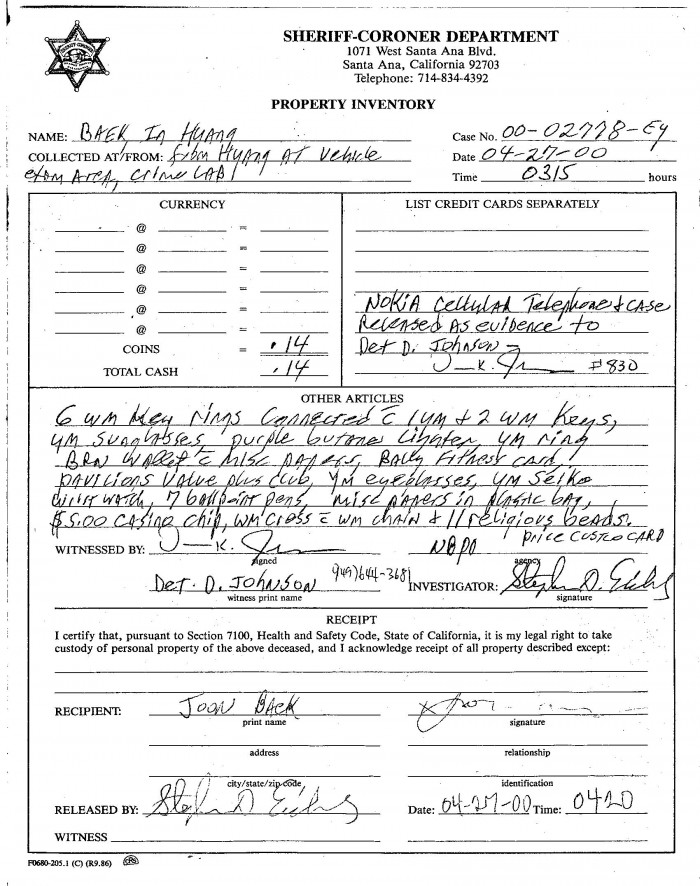 SHERIFF-CORONER DEPARTMENT
1071 West Santa Ana Blvd.
Santa Ana, California 92703
Telephone: 714-834-4392
PROPERTY INVENTORY
NAME: BAEK, In HUANG
Case No. 00-02778-Ey
COLLECTED AT/FROM: from HUANG AT Vehicle
Date 04-27-00
exam AREA, Crime LAB
Time 0315 hours
CURRENCY
@ =
@ =
@ =
@ =
@ =
@ =
COINS = .14
TOTAL CASH .14
LIST CREDIT CARDS SEPARATELY
NOKIA Cellular Telephone & CASE
Released AS evidence to
Det D. Johnson
#830
OTHER ARTICLES
6 WM Key rings Connected c̄ 1 YM & 2 WM Keys,
YM Sunglasses, purple butane Lighter, YM ring
BRN Wallet c̄ MISC papers, Bally Fitness card,
pavilions Value plus club, YM eyeglasses, YM Seiko
wrist watch, 7 ballpoint pens, misc papers in plastic bag,
$5.00 casino chip, WM Cross c̄ WM chain & 11 religious beads.
price CUSTCO CARD
WITNESSED BY:
signed
NBPD
agency
Det. D. Johnson
witness print name
949) 644-3681
INVESTIGATOR:
signature
RECEIPT
I certify that, pursuant to Section 7100, Health and Safety Code, State of California, it is my legal right to take
custody of personal property of the above deceased, and I acknowledge receipt of all property described except:
RECIPIENT: JOON BAEK
print name
signature
address
relationship
city/state/zip code
identification
RELEASED BY:
Date: 04-27-00 Time: 0420
WITNESS
F0680-205.1 (C) (R9.86)